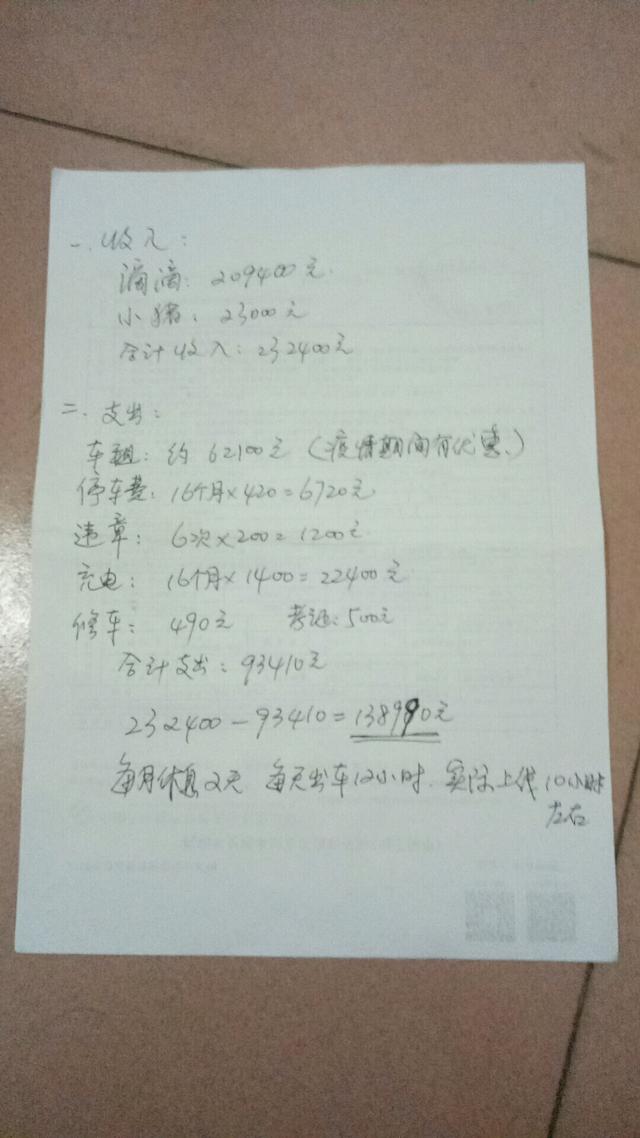 一. 收入:
滴滴: 209400元.
小猪: 23000元
合计收入: 232400元
二. 支出:
车租: 约 62100元 (疫情期间有优惠.)
停车费: 16个月×420=6720元
违章: 6次×200=1200元
充电: 16个月×1400=22400元
修车: 490元 考证: 500元
合计支出: 93410元
232400-93410=138990元
每月休息2天 每天出车12小时. 实际上线10小时
左右